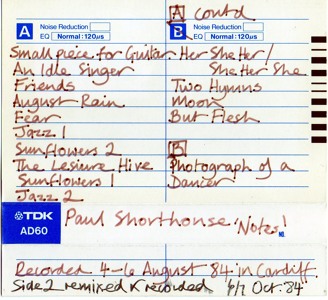 A contd
A Noise Reduction
EQ Normal:120µs
B Noise Reduction
EQ Normal:120µs
Small piece for Guitar
An Idle Singer
Friends
August Rain
Fear
Jazz 1
Sunflowers 2
The Lesiure Hive
Sunflowers 1
Jazz 2
Her She Her/
She Her She
Two Hymns
Moon
But Flesh
B
Photograph of a
Dancer
TDK
AD60
Paul Shorthouse 'Notes!
Recorded 4-6 August 84 in Cardiff.
Side 2 remixed & recorded Oct. '84